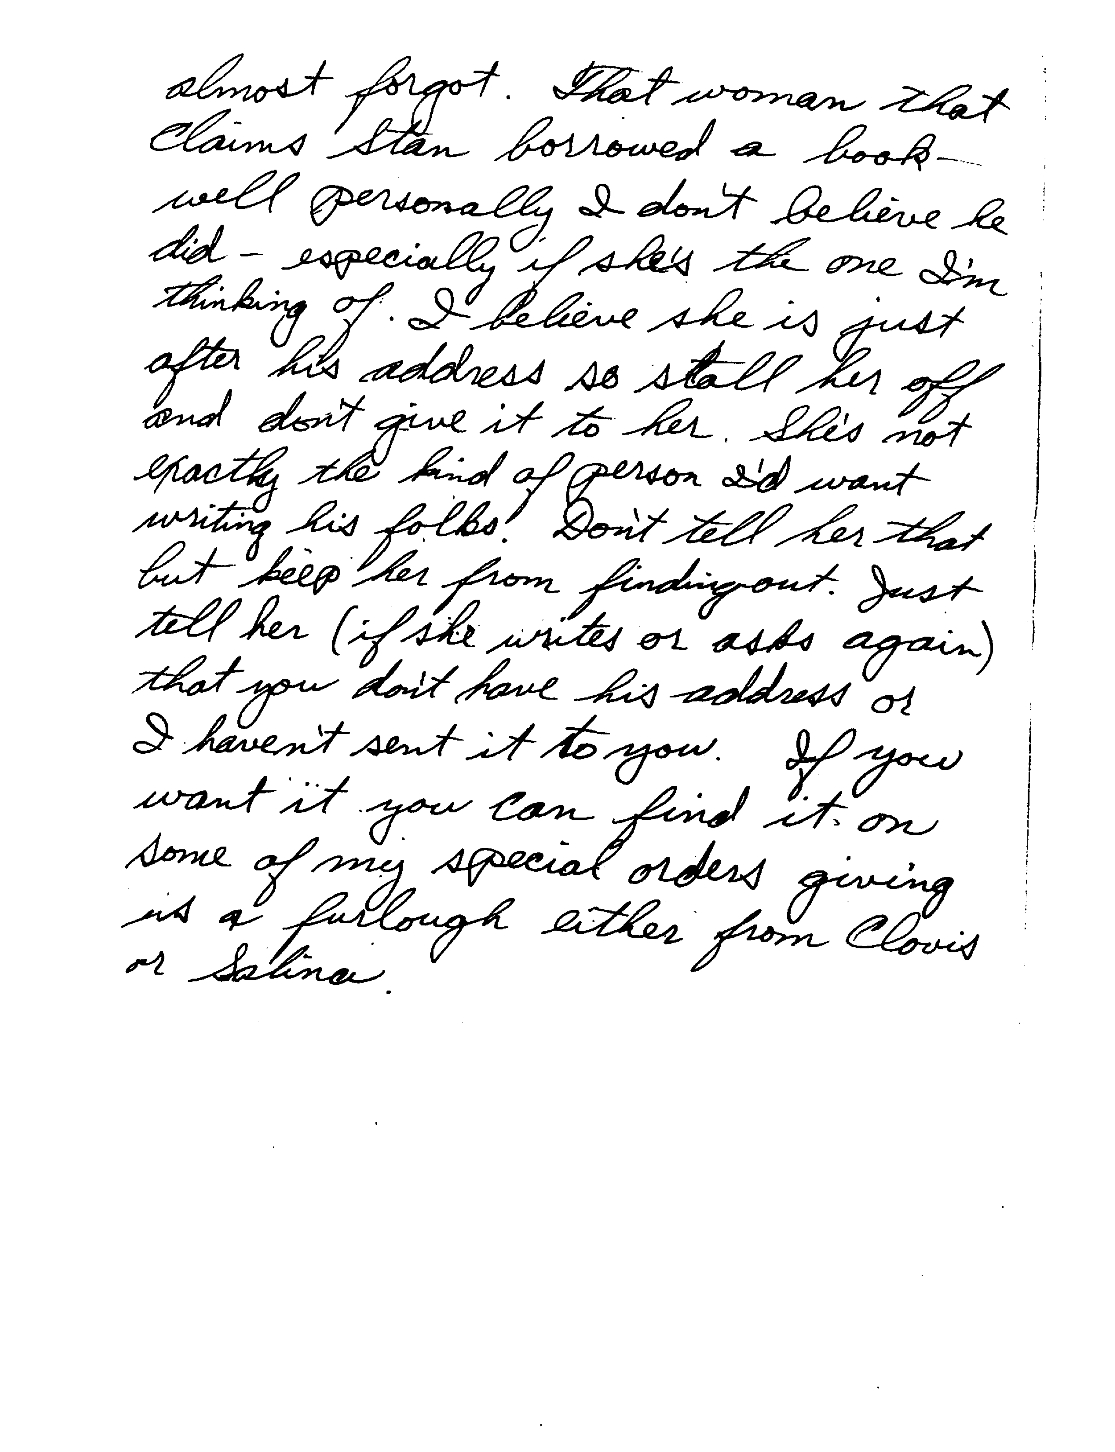 almost forgot. That woman that
claims Stan borrowed a book—
well personally I don't believe he
did – especially if she's the one I'm
thinking of. I believe she is just
after his address so stall her off
and don't give it to her. She's not
exactly the kind of person I'd want
writing his folks! Don't tell her that
but keep her from finding out. Just
tell her (if she writes or asks again)
that you don't have his address or
I haven't sent it to you. If you
want it you can find it on
some of my special orders giving
us a furlough either from Clovis
or Salina.